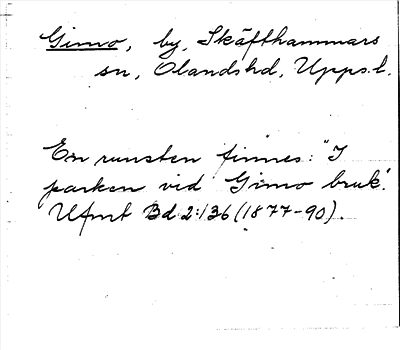 Gimo, by, Skäfthammars
sn, Olands hd, Upps. l.
En runsten finnes: "I
parken vid Gimo bruk".
Ufmt Bd 2:136 (1877-90).